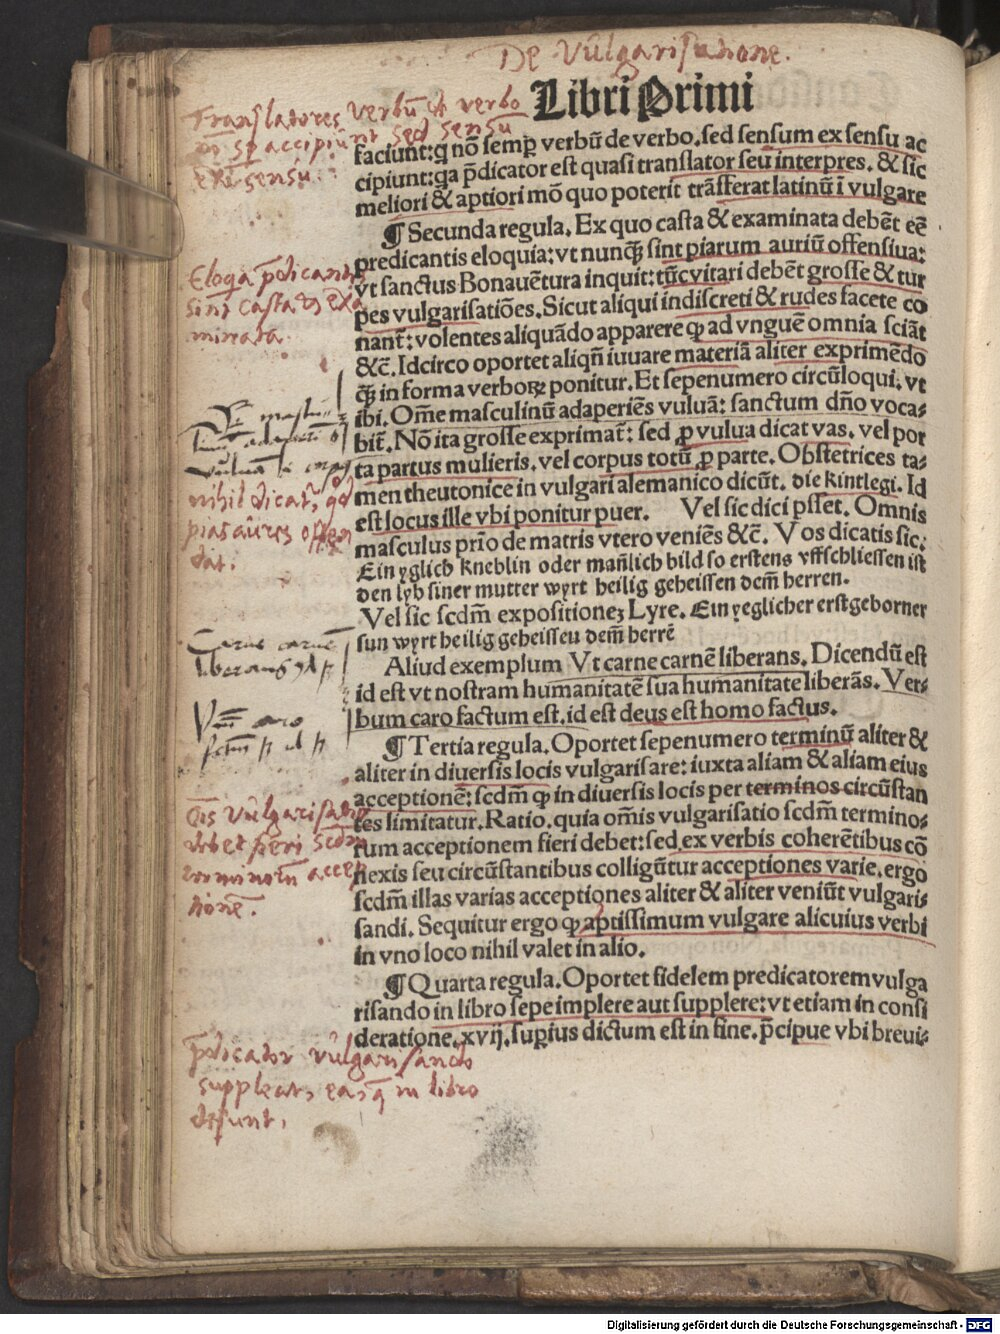 De vulgarisatione.
Libri Primi
faciunt: q̄ nō semp̱ verbū de verbo. sed sensum ex sensu ac
cipiunt: qa p̄dicator est quasi translator seu interpres. & sic
meliori & aptiori mō quo poterit trāsferat latinū ī vulgare
¶ Secunda regula. Ex quo casta & examinata debēt eē
predicantis eloquia: vt nunq̄ʒ sint piarum auriū offensiua:
vt sanctus Bonauētura inquit: tūc vitari debēt grosse & tur
pes vulgarisatiōes. Sicut aliqui indiscreti & rudes facete co
nant̄: volentes aliquādo apparere ꝙ ad vnguē omnia sciāt
&c̄. Idcirco oportet aliqñ iuuare materiā aliter exprimēdo
q̄ʒ in forma verboꝝ ponitur. Et sepenumero circūloqui. vt
ibi. Om̄e masculinū adaperiēs vuluā: sanctum dño voca⸗
bit̄. Nō ita grosse exprimat̄: sed ꝓ vulua dicat vas. vel por
ta partus mulieris. vel corpus totū ꝓ parte. Obstetrices ta⸗
men theutonice in vulgari alemanico dicūt. die kintlegi. Id
est locus ille vbi ponitur puer. Vel sic dici pisset. Omnis
masculus prīo de matris vtero veniēs &c̄. Vos dicatis sic:
Ein yglich kneblin oder mañlich bild so erstens vffschliessen ist
den lyb siner mutter wyrt heilig geheissen dem̄ herren.
Vel sic scdm̄ expositioneʒ Lyre. Ein yeglicher erstgeborner
sun wyrt heilig geheisseu dem̄ herrē
Aliud exemplum Vt carne carnē liberans. Dicendū est
id est vt nostram humanitatē sua humanitate liberās. Ver⸗
bum caro factum est. id est deus est homo factus.
¶ Tertia regula. Oportet sepenumero terminū aliter &
aliter in diuersis locis vulgarisare: iuxta aliam & aliam eius
acceptionē: scdm̄ ꝙ in diuersis locis per terminos circūstan
tes limitatur. Ratio. quia om̄is vulgarisatio scdm̄ termino⸗
rum acceptionem fieri debet: sed ex verbis coherētibus cō
nexis seu circūstantibus colligūtur acceptiones varie. ergo
scdm̄ illas varias acceptiones aliter & aliter veniūt vulgari⸗
sandi. Sequitur ergo ꝙ aptissimum vulgare alicuius verbi
in vno loco nihil valet in alio.
¶ Quarta regula. Oportet fidelem predicatorem vulga
risando in libro sepe implere aut supplere: vt etiam in consi
deratione. xvij. sup̱ius dictum est in fine. p̄cipue vbi breui⸗
Translatores verbū de verbo
accipiūnt sed sensū
ex sensu.
Eloqa p̄dicantis
sint casta & exa
minata.
nihil dicat̄, qd
pias aures offen
dat.
Carne carnē
liberans
caro
vulgarisatio
debet fieri scdm
terminorū accep
tionē.
p̄dicator vulgarisando
suppleat, ea q̄ in libro
desunt.
Digitalisierung gefördert durch die Deutsche Forschungsgemeinschaft - DFG